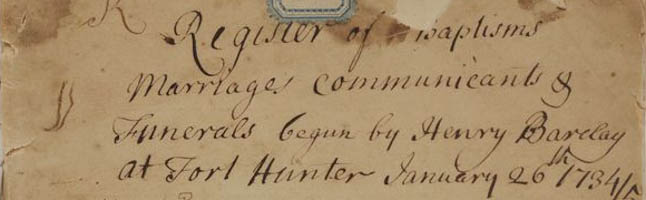 Register of Baptisms
Marriages Communicants &
Funerals begun by Henry Barclay
at Fort Hunter January 26th 1734/5